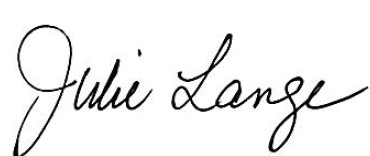 Julie Lange